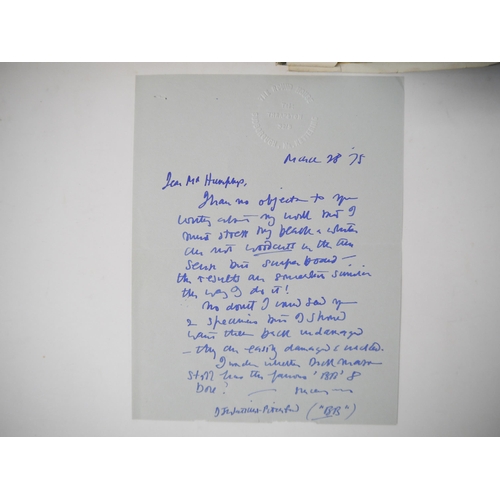 March 28 '75
Dear Mr Humphreys,
I have no objection to you
writing about my work but I
must stress my black & whites
are not woodcuts in the true
sense but scraper board –
the results are somewhat similar
the way I do it!
No doubt I could send you
2 specimens but I should
want them back undamaged
– they are easily damaged & cracked.
I wonder whether Dick Mason
still has the famous 'BB' 8
bore?
D J Watkins-Pitchford ("BB")